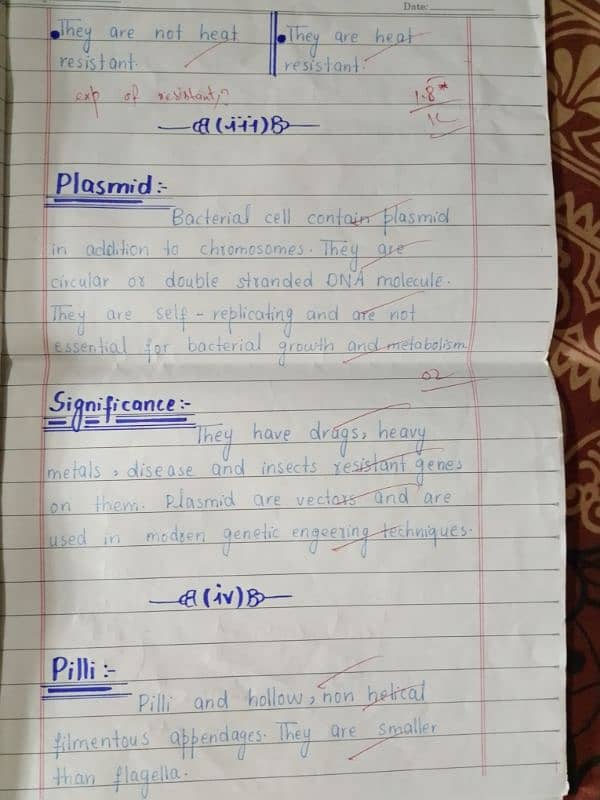 Date:
•They are not heat
resistant.
•They are heat
resistant.
exp of resistant,?
(iii)
Plasmid:-
Bacterial cell contain plasmid
in addition to chromosomes. They are
circular or double stranded DNA molecule.
They are self-replicating and are not
essential for bacterial growth and metabolism
02
Significance:-
They have drags, heavy
metals, disease and insects resistant genes
on them. Plasmid are vectors and are
used in modren genetic engeering techniques.
(iv)
Pilli:-
Pilli and hollow, non helical
filmentous appendages. They are smaller
than flagella.